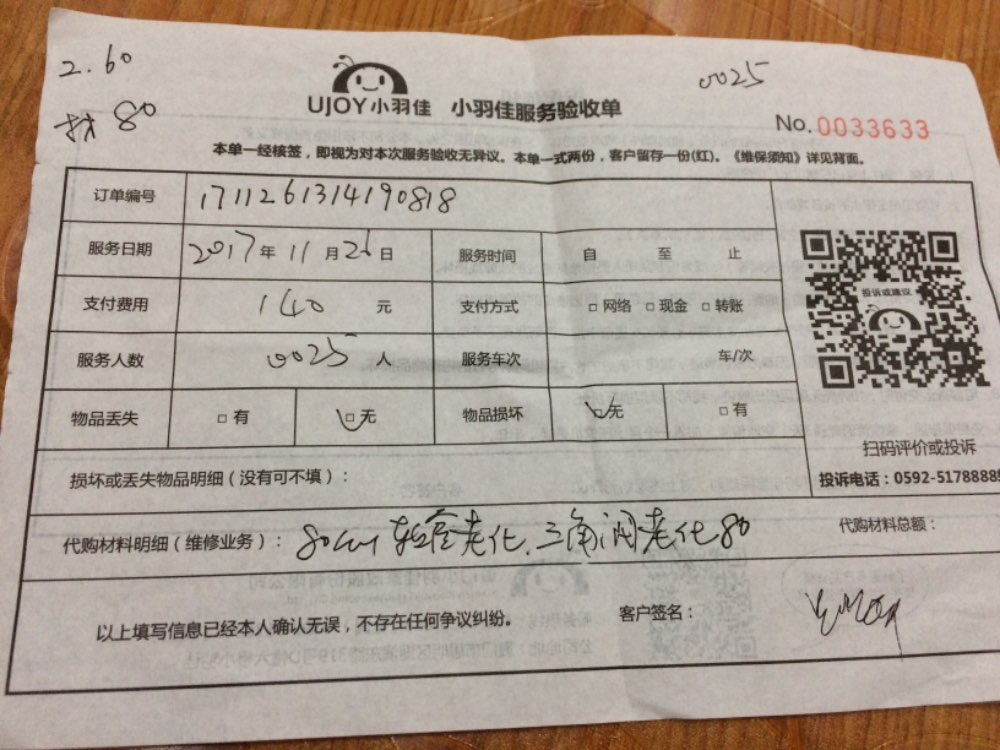 2.60
找 80
0025
UJOY小羽佳 小羽佳服务验收单
No.0033633
本单一经核签，即视为对本次服务验收无异议。本单一式两份，客户留存一份(红)。《维保须知》详见背面。
订单编号 171126131419081８
服务日期 2017年 11月26日 服务时间 自 至 止
支付费用 140 元 支付方式 □ 网络 □ 现金 □ 转账
服务人数 0025 人 服务车次 车/次
物品丢失 □ 有 □ 无 物品损坏 无 □ 有
投诉或建议
扫码评价或投诉
投诉电话：0592-5178888
损坏或丢失物品明细（没有可不填）：
代购材料明细（维修业务）： 80cm 软管老化、三角阀老化80
代购材料总额：
以上填写信息已经本人确认无误，不存在任何争议纠纷。
客户签名：